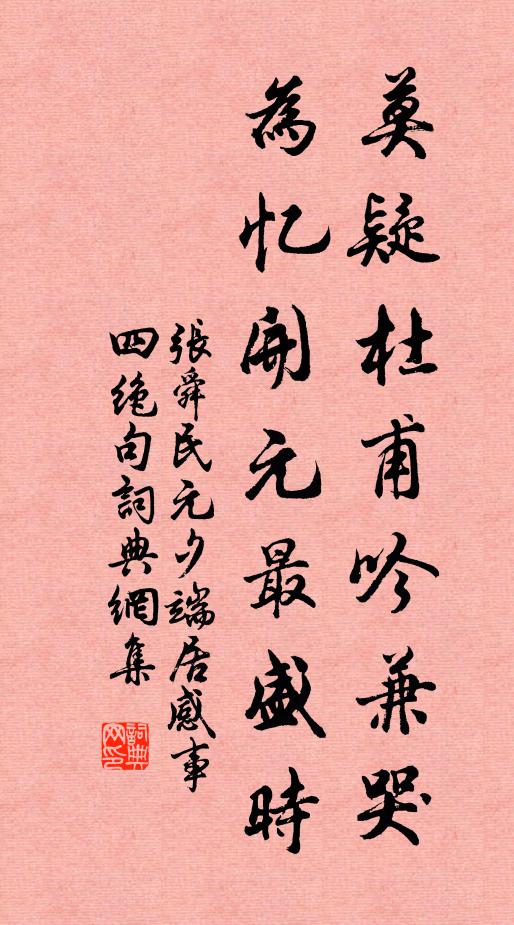 莫疑杜甫吟兼哭
為忆開元最盛時
張舜民元夕端居感事
四绝句詞典網集
詞典
网印